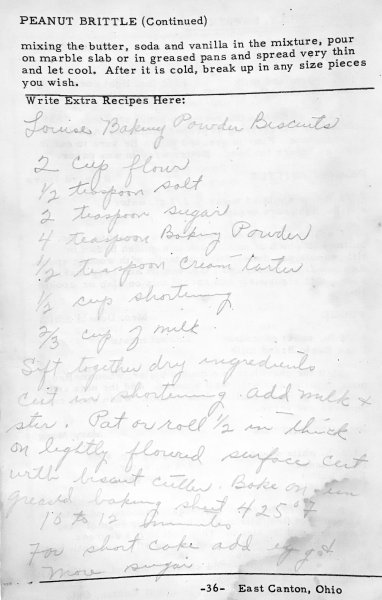 PEANUT BRITTLE (Continued)
mixing the butter, soda and vanilla in the mixture, pour
on marble slab or in greased pans and spread very thin
and let cool. After it is cold, break up in any size pieces
you wish.
Write Extra Recipes Here:
Louise Baking Powder Biscuits
2 cup flour
1/2 teaspoon salt
2 teaspoon sugar
4 teaspoon Baking Powder
1/2 teaspoon cream tarter
1/2 cup shortening
2/3 cup of milk.
Sift together dry ingredients
cut in shortening add milk +
stir. Pat or roll 1/2 in thick
on lightly floured surface cut
with biscuit cutter. Bake on
greased baking sheet 425° F
10 to 12 minutes
For short cake add egg +
more sugar
-36- East Canton, Ohio